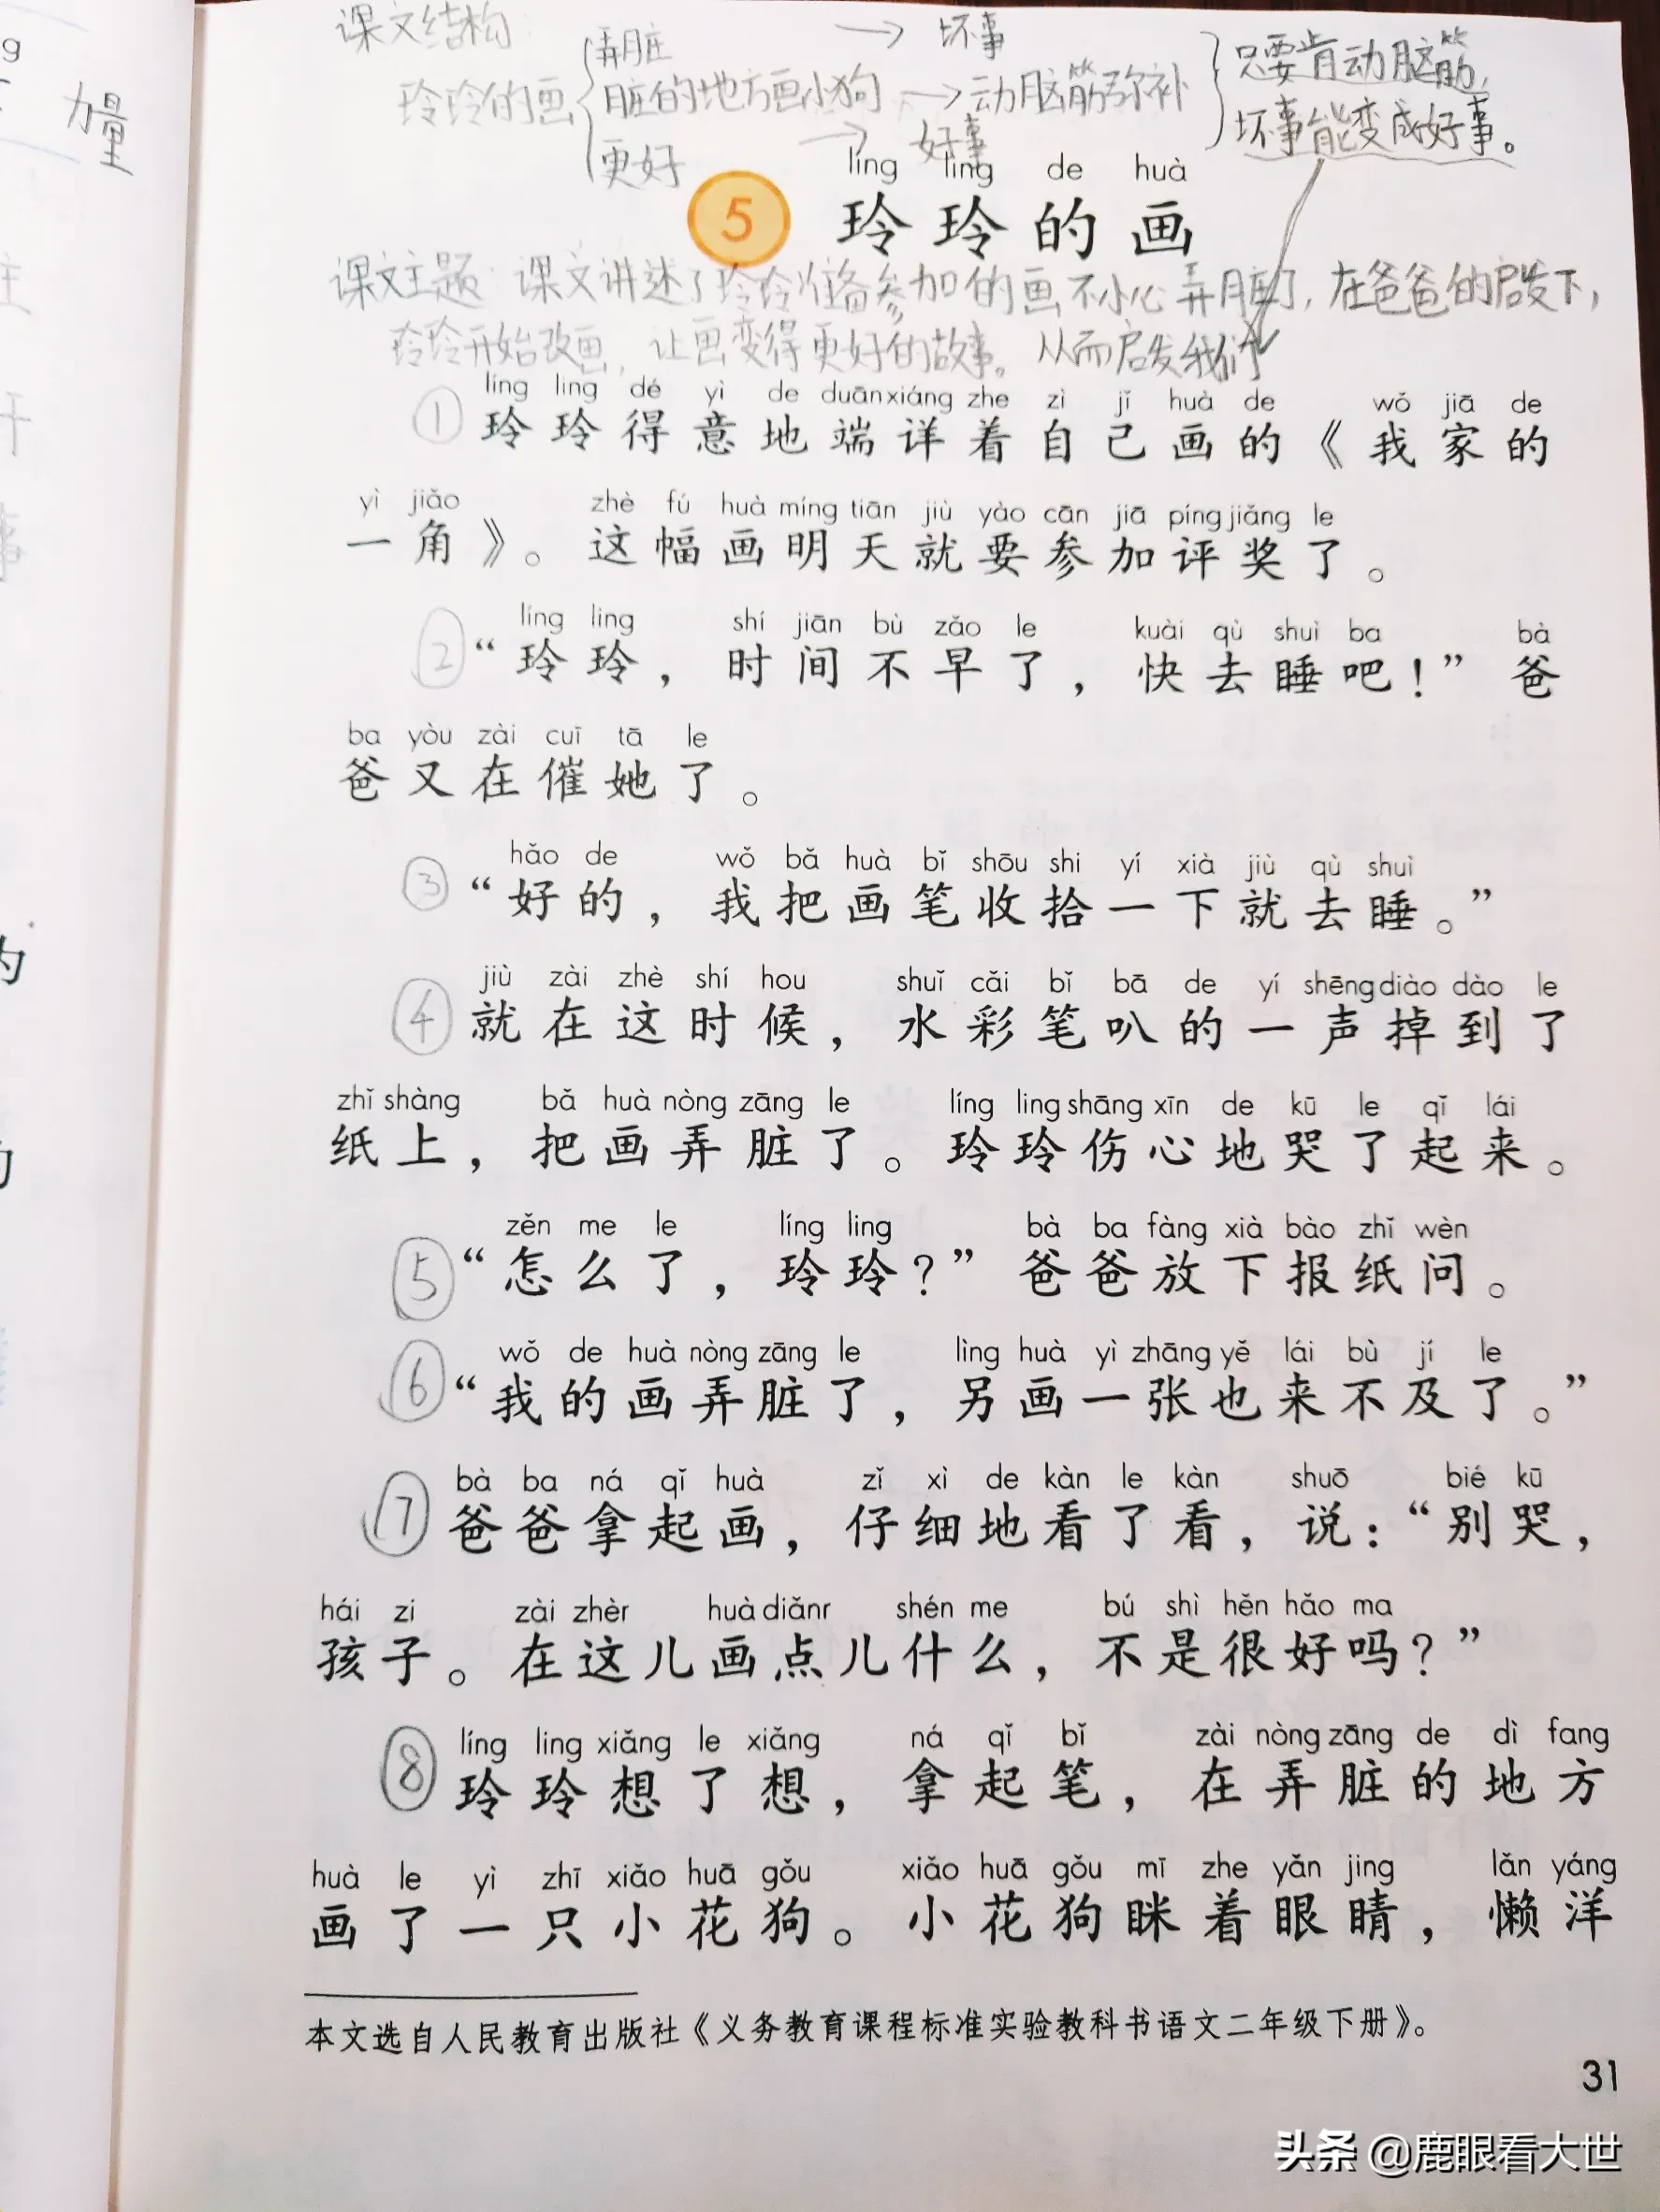 课文结构:
玲玲的画
弄脏 → 坏事
脏的地方画小狗 → 动脑筋弥补
更好 → 好事
只要肯动脑筋,
坏事能变成好事。
力量
líng ling de huà
5 玲玲的画
课文主题:课文讲述了玲玲准备参加的画不小心弄脏了,在爸爸的启发下,
玲玲开始改画,让画变得更好的故事。从而启发我们
líng ling dé yì de duān xiáng zhe zì jǐ huà de wǒ jiā de
① 玲玲得意地端详着自己画的《我家的
yì jiǎo zhè fú huà míng tiān jiù yào cān jiā píng jiǎng le
一角》。这幅画明天就要参加评奖了。
líng ling shí jiān bù zǎo le kuài qù shuì ba bà
② “玲玲,时间不早了,快去睡吧!”爸
ba yòu zài cuī tā le
爸又在催她了。
hǎo de wǒ bǎ huà bǐ shōu shi yí xià jiù qù shuì
③ “好的,我把画笔收拾一下就去睡。”
jiù zài zhè shí hou shuǐ cǎi bǐ bā de yí shēng diào dào le
④ 就在这时候,水彩笔叭的一声掉到了
zhǐ shàng bǎ huà nòng zāng le líng ling shāng xīn de kū le qǐ lái
纸上,把画弄脏了。玲玲伤心地哭了起来。
zěn me le líng ling bà ba fàng xià bào zhǐ wèn
⑤ “怎么了,玲玲?”爸爸放下报纸问。
wǒ de huà nòng zāng le lìng huà yì zhāng yě lái bù jí le
⑥ “我的画弄脏了,另画一张也来不及了。”
bà ba ná qǐ huà zǐ xì de kàn le kàn shuō bié kū
⑦ 爸爸拿起画,仔细地看了看,说:“别哭,
hái zi zài zhèr huà diǎnr shén me bú shì hěn hǎo ma
孩子。在这儿画点儿什么,不是很好吗?”
líng ling xiǎng le xiǎng ná qǐ bǐ zài nòng zāng de dì fang
⑧ 玲玲想了想,拿起笔,在弄脏的地方
huà le yì zhī xiǎo huā gǒu xiǎo huā gǒu mī zhe yǎn jing lǎn yáng
画了一只小花狗。小花狗眯着眼睛,懒洋
本文选自人民教育出版社《义务教育课程标准实验教科书语文二年级下册》。
31
头条 @鹿眼看大世